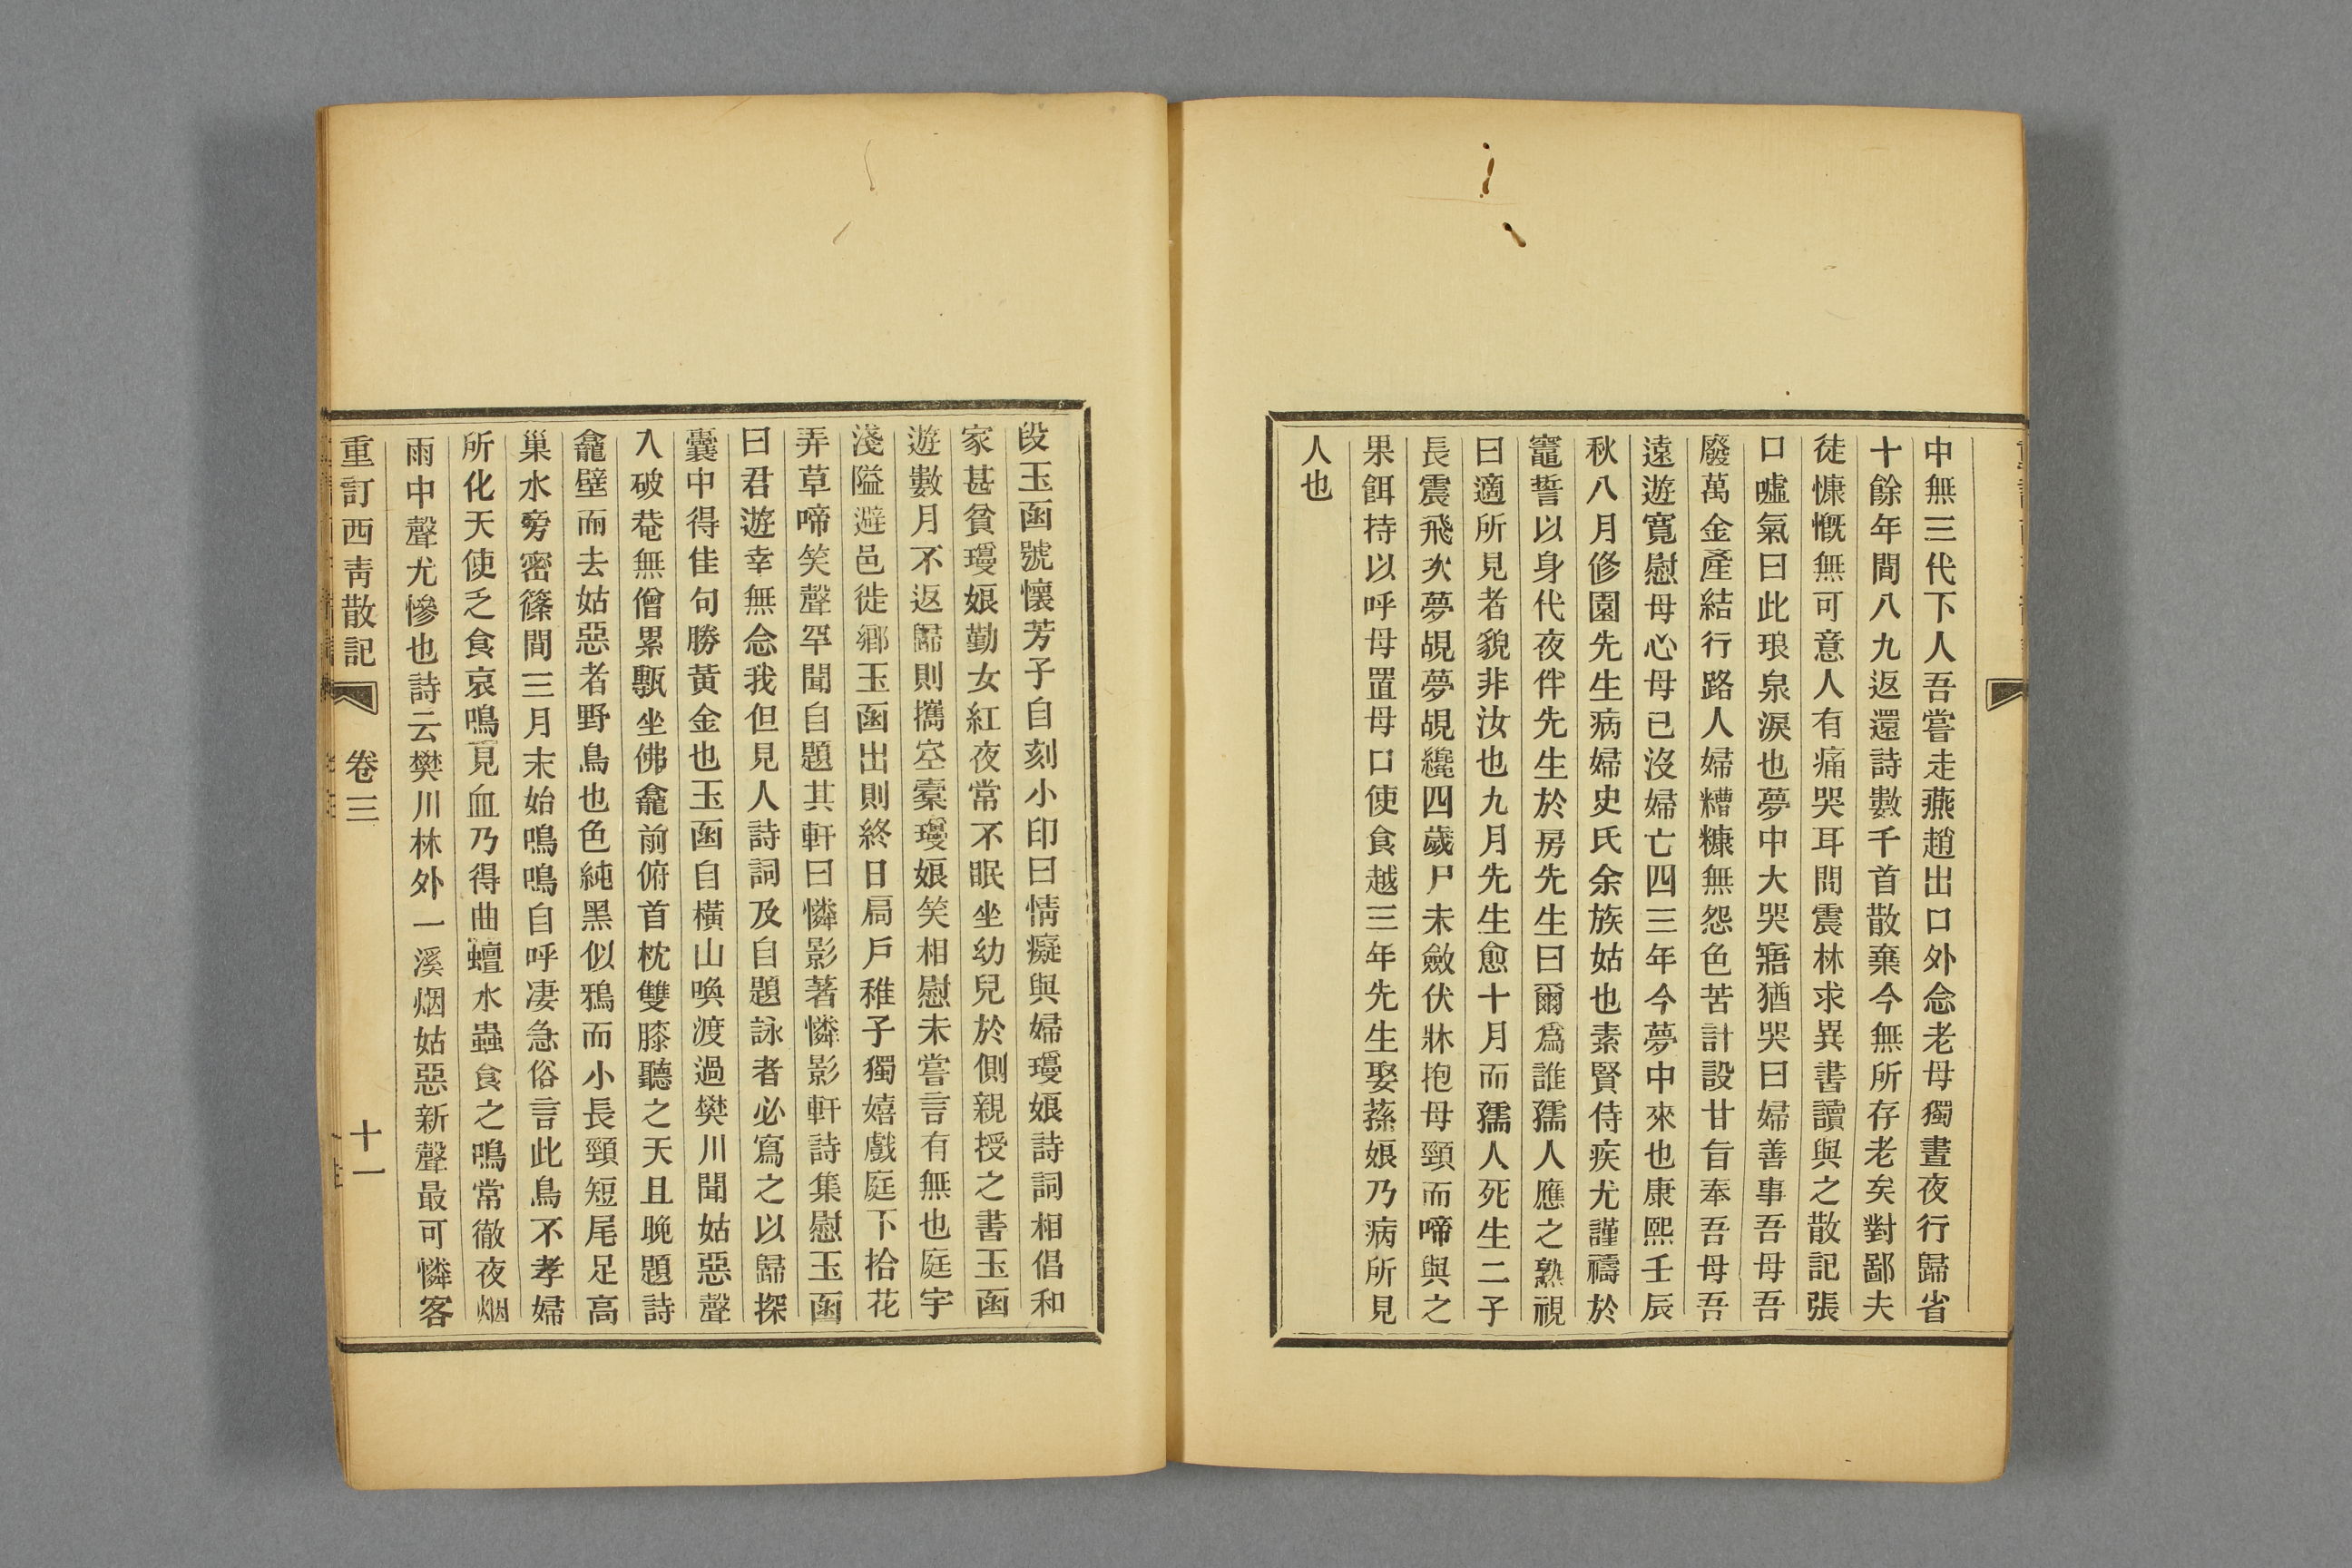 中無三代下人吾嘗走燕趙出口外念老母獨晝夜行歸省
十餘年間八九返還詩數千首散棄今無所存老矣對鄙夫
徒慷慨無可意人有痛哭耳問震林求異書讀與之散記張
口噓氣曰此琅泉淚也夢中大哭寤猶哭曰婦善事吾母吾
廢萬金產結行路人婦糟糠無怨色苦計設甘旨奉吾母吾
遠遊寬慰母心母已沒婦亡四三年今夢中來也康熙壬辰
秋八月修園先生病婦史氏余族姑也素賢侍疾尤謹禱於
竈誓以身代夜伴先生於房先生曰爾爲誰孺人應之熟視
曰適所見者貌非汝也九月先生愈十月而孺人死生二子
長震飛次夢覘夢覘纔四歲尸未斂伏牀抱母頸而啼與之
果餌持以呼母置母口使食越三年先生娶蓀娘乃病所見
人也
段玉函號懷芳子自刻小印曰情癡與婦瓊娘詩詞相倡和
家甚貧瓊娘勤女紅夜常不眠坐幼兒於側親授之書玉函
遊數月不返歸則攜空橐瓊娘笑相慰未嘗言有無也庭宇
淺隘避邑徙鄉玉函出則終日扃戶稚子獨嬉戲庭下拾花
弄草啼笑聲罕聞自題其軒曰憐影著憐影軒詩集慰玉函
曰君遊幸無念我但見人詩詞及自題詠者必寫之以歸探
囊中得佳句勝黃金也玉函自橫山喚渡過樊川聞姑惡聲
入破菴無僧累甎坐佛龕前俯首枕雙膝聽之天且晚題詩
龕壁而去姑惡者野鳥也色純黑似鴉而小長頸短尾足高
巢水旁密篠間三月末始鳴鳴自呼凄急俗言此鳥不孝婦
所化天使乏食哀鳴見血乃得曲蟺水蟲食之鳴常徹夜烟
雨中聲尤慘也詩云樊川林外一溪烟姑惡新聲最可憐客
重訂西靑散記 卷三 十一